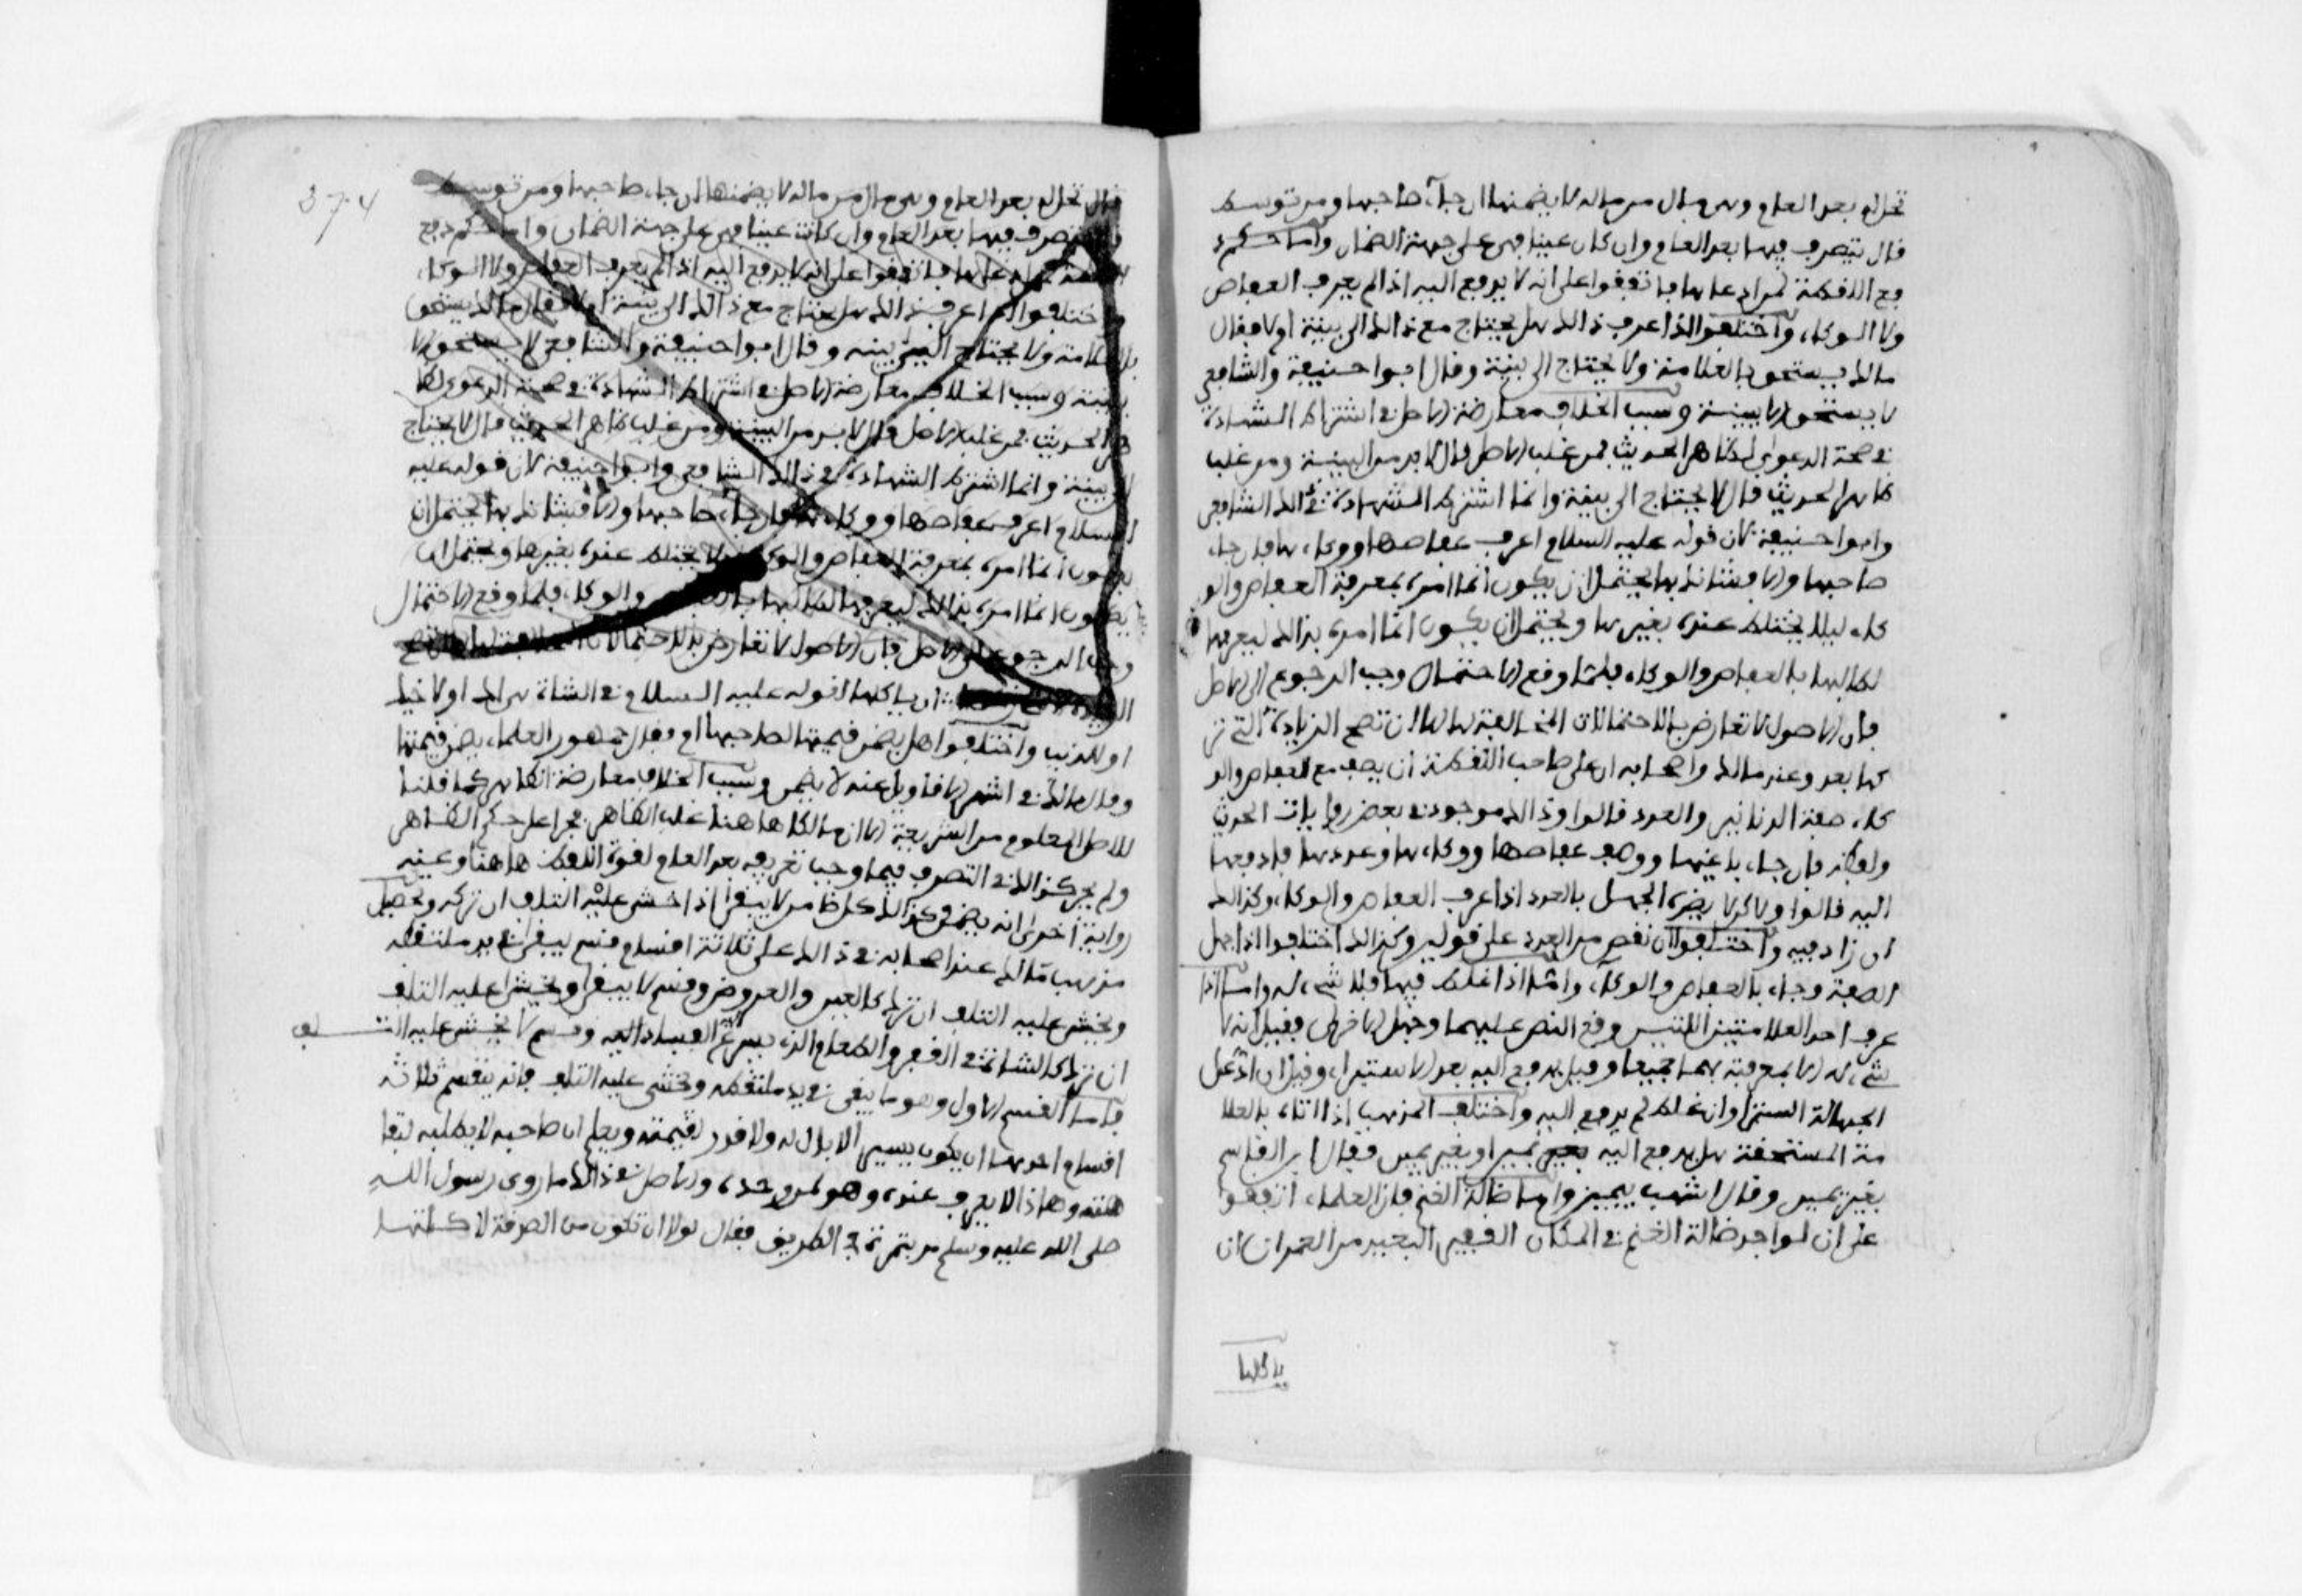 تحل له بعد العام وهي مال من ماله لا يضمنها ان جاء صاحبها ومن توسط
قال يتصرف فيها بعد العام وان كان عينا فهي على جهة الضمان واما حكم د
فع اللقطة لمن ادعاها فاتفقوا على انه لا يدفع اليه اذا لم يعرف العفاص
ولا الوكاء واختلفوا اذا عرف ذالك هل يحتاج مع ذالك الى بينة ام لا فقال
مالك يستحق بالعلامة ولا يحتاج الى بينة وقال ابوا حنيفة والشافعي
لا يستحق الا ببينة وسبب الخلاف معارضة الاصل في اشتراط الشهادة
في صحة الدعوى لظاهر الحديث فمن غلب الاصل قال لا بد من البينة ومن غلب
ظاهر الحديث قال لا يحتاج الى بينة وانما اشترط الشهادة في ذالك الشافعي
وابوا حنيفة لان قوله عليه السلام اعرف عفاصها ووكاءها فان جاء
صاحبها والا فشانك بها يحتمل ان يكون انما امره بمعرفة العفاص والو
كاء ليلا يختلط عنده بغيرها ويحتمل ان يكون انما امره بذالك ليعرفها
لطالبها بالعفاص والوكاء فلما وقع الاحتمال وجب الرجوع الى الاصل
فان الاصول لا تعارض بالاحتمالات المخالفة لها الا ان تصح الزيادة التي نذ
كرها بعد وعند مالك واصحابه ان على صاحب اللقطة ان يصف مع العفاص والو
كاء صفة الدنانير والعدد قالوا وذالك موجود في بعض روايات الحديث
ولفظه فان جاء باغيها ووصف عفاصها ووكاءها وعددها فادفعها
اليه قالوا ولاكن لا يضره الجهل بالعدد اذا عرف العفاص والوكاء وكذالك
ان زاد فيه واختلفوا ان نقص من العدد على قولين وكذالك اختلفوا اذا جهل
الصفة وجاء بالعفاص والوكاء واما اذا غلط فيها فلا شيء له واما اذا
عرف احد العلامتين اللتين وقع النص عليهما وجهل الاخرى فقيل انه لا
شيء له الا بمعرفته بهما جميعا وقيل يدفع اليه بعد الاستبراء وقيل ان ادعى
الجهالة استبرا وان غلط لم يدفع اليه واختلف المذهب اذا اتاه بالعلا
مة المستحقة هل يدفع اليه بيمين او بغير يمين فقال ابن القاسم
بغير يمين وقال اشهب بيمين واما ضالة الغنم فان العلماء اتفقوا
على ان لواجد ضالة الغنم في المكان القفر البعيد من العمران ان
ياكلها
374
قال تحل له بعد العام وهي مال من ماله لا يضمنها ان جاء صاحبها ومن توسط
يتصرف فيها بعد العام وان كانت عينا فهي على جهة الضمان واما حكم دفع
ادعاها فاتفقوا على انه لا يدفع اليه اذا لم يعرف العفاص ولا الوكاء
واختلفوا اذا عرف ذالك هل يحتاج مع ذالك الى بينة ام لا فقال مالك يستحق
بالعلامة ولا يحتاج الى بينه وقال ابوا حنيفة والشافعي لا يستحق الا
ببينة وسبب الخلاف معارضة الاصل في اشتراط الشهادة في صحة الدعوى لظا
هر الحديث فمن غلب الاصل قال لا بد من البينة ومن غلب ظاهر الحديث قال لا يحتاج
الى بينة وانما اشترط الشهادة في ذالك الشافعي وابوا حنيفة لان قوله عليه
السلام اعرف عفاصها ووكاءها فان جاء صاحبها والا فشانك بها يحتمل ان
يكون انما امره بمعرفة العفاص والوكاء ليلا يختلط عنده بغيرها ويحتمل ان
يكون انما امره بذالك ليعرفها لطالبها والوكاء فلما وقع الاحتمال
وجب الرجوع الى الاصل فان الاصول لا تعارض بالاحتمالات
ان ياكلها لقوله عليه السلام في الشاة هي لك او لاخيك
او للذيب واختلفوا هل يضمن قيمتها لصاحبها ام لا فقال جمهور العلماء يضمن قيمتها
وقال مالك في اشهر الاقاويل عنه لا يضمن وسبب الخلاف معارضة الظاهر كما قلنا
للاصل المعلوم من الشريعة الا ان مالكا هاهنا غلب الظاهر فجرا على حكم الظاهر
ولم يجز كذالك التصرف فيما وجب تعريفه بعد العام لقوة اللفظ هاهنا وعنه
رواية اخرى انه يضمن وكذالك كل طعام لا يبقى اذا خشي عليه التلف ان تركه وتحصيل
مذهب مالك عند اصحابه في ذالك على ثلاثة اقسام قسم يبقى في يد ملتقطه
ويخشى عليه التلف ان تركه كالعين والعروض وقسم لا يبقى ويخشى عليه التلف
ان تركه كالشاة في القفر والطعام الذي يسرع الفساد اليه وقسم لا يخشى عليه التلف
فاما القسم الاول وهو ما يبقى في يد ملتقطه ويخشى عليه التلف فانه ينقسم ثلاثة
اقسام احدها ان يكون يسيرا لا بال له ولا قدر لقيمته ويعلم ان صاحبه لا يطلبه لتفا
هته وهاذا لا يعرف عنده وهو لمن وجده والاصل في ذالك ما روى رسول الله
صلى الله عليه وسلم مر بتمرة في الطريق فقال لولا ان تكون من الصدقة لاكلتها